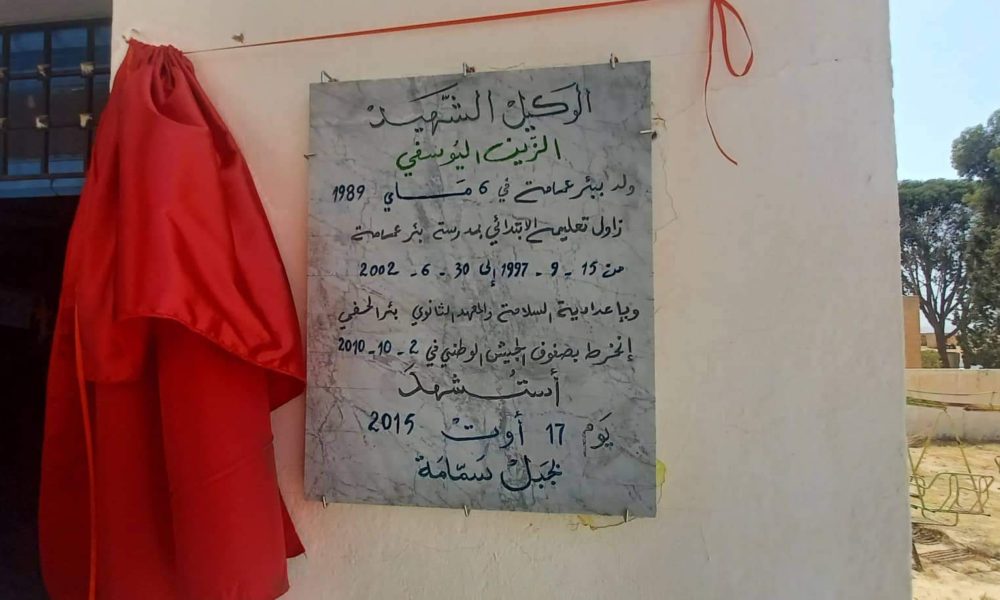 الوكيل الشّهيد
الزّين اليُوسفي
ولد ببئر عمامة في 6 مَاي 1989
زاول تعليمه الإبتدائي بمدرسة بئر عمامة
من 15 - 9 - 1997 إلى 30 - 6 - 2002
وبإعدادية السلامة والمعهد الثانوي بئر الحفي
إنخرط بصفوف الجيش الوطني في 2 - 10 - 2010
أستُشهدَ
يَوم 17 أوت 2015
بجَبل سَمّامَة